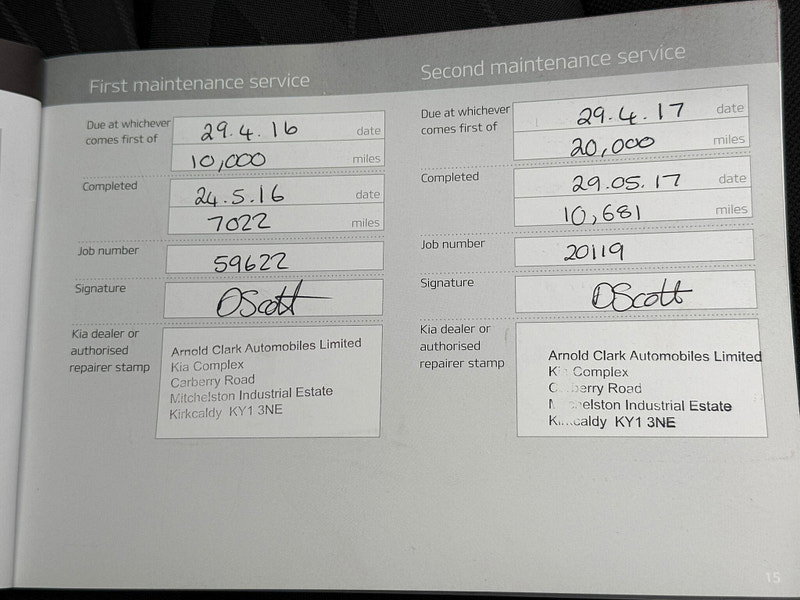 First maintenance service
Due at whichever
comes first of
29.4.16 date
10,000 miles
Completed
24.5.16 date
7022 miles
Job number
59622
Signature
DScott
Kia dealer or
authorised
repairer stamp
Arnold Clark Automobiles Limited
Kia Complex
Carberry Road
Mitchelston Industrial Estate
Kirkcaldy KY1 3NE
Second maintenance service
Due at whichever
comes first of
29.4.17 date
20,000 miles
Completed
29.05.17 date
10,681 miles
Job number
20119
Signature
DScott
Kia dealer or
authorised
repairer stamp
Arnold Clark Automobiles Limited
Complex
Road
Industrial Estate
KY1 3NE
15